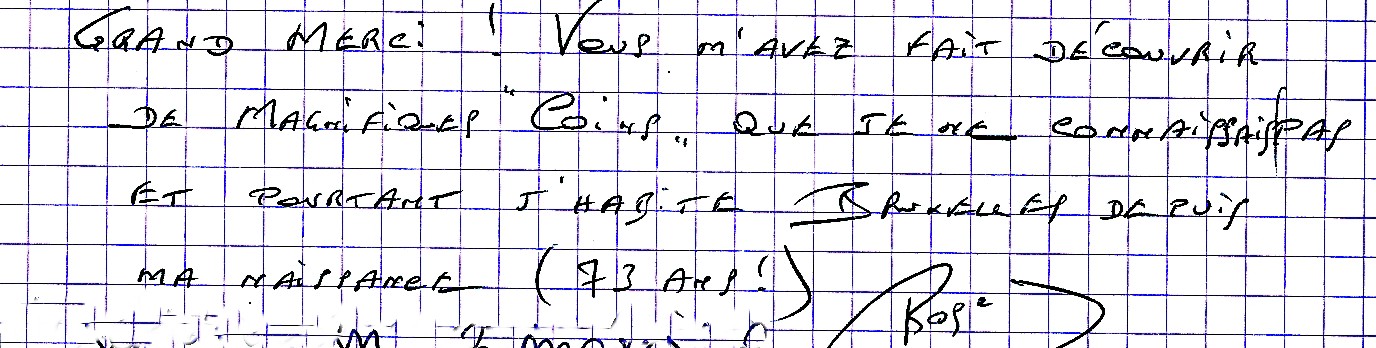 GRAND MERCi ! Vous m'AVEZ FAiT DÉCOUVRIR
DE MAGNiFiQUES "Coins„ QUE JE NE CONNAiSSAiS PAS
ET POURTANT J'HABiTE BRUXELLES DEPUiS
MA NAiSSANCE (73 ANS!)